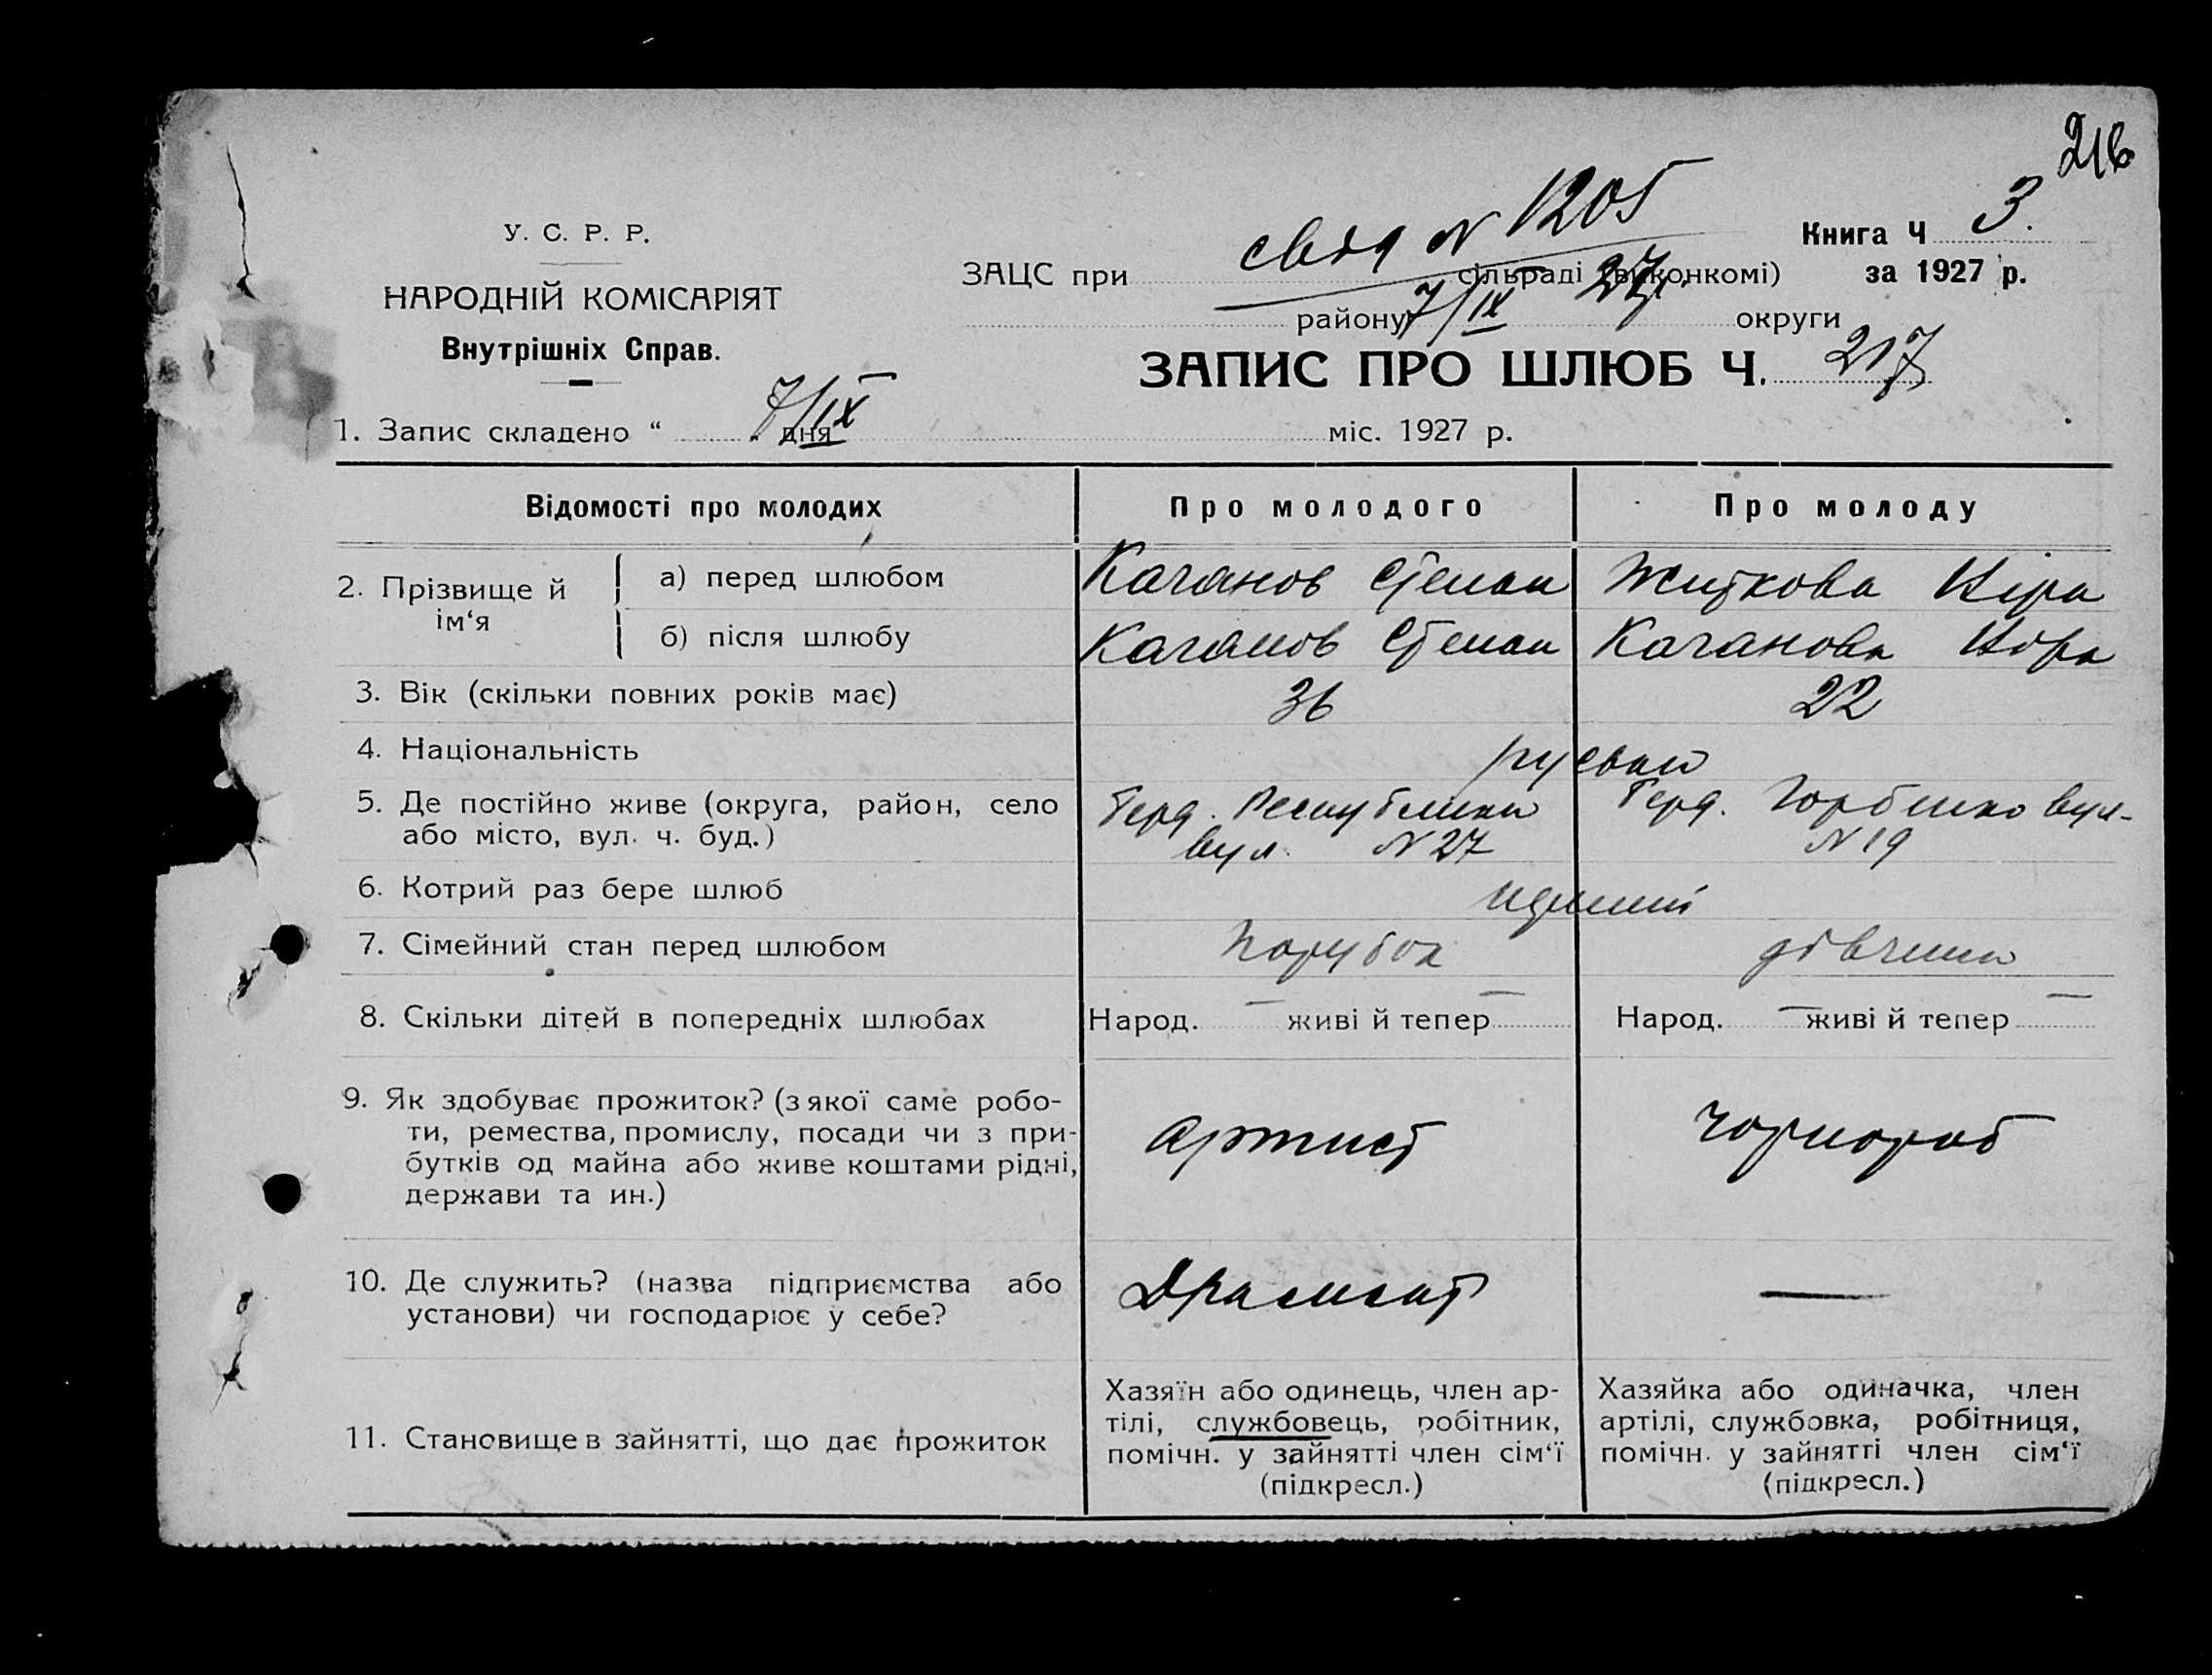 216
У. С. Р. Р.
НАРОДНІЙ КОМІСАРІЯТ
Внутрішніх Справ.
свід N 1205
7/IX 27
ЗАЦС при сільраді (виконкомі)
району округи
Книга Ч 3.
за 1927 р.
ЗАПИС ПРО ШЛЮБ Ч. 217
1. Запис складено “ 7/IX „ дня міс. 1927 р.
Відомості про молодих Про молодого Про молоду
2. Прізвище й ім‘я
а) перед шлюбом Качанов Степан Житкова Віра
б) після шлюбу Качанов Степан Качанова Віра
3. Вік (скільки повних років має) 36 22
4. Національність
5. Де постійно живе (округа, район, село Республіки вул.
або місто, вул. ч. буд.) вул. N 27 N 19
6. Котрий раз бере шлюб
7. Сімейний стан перед шлюбом Парубок дівчина
8. Скільки дітей в попередніх шлюбах Народ. — живі й тепер — Народ. — живі й тепер —
9. Як здобуває прожиток? (з якої саме робо-
ти, ремества, промислу, посади чи з при-
бутків од майна або живе коштами рідні,
держави та ин.)
артист чорнороб
10. Де служить? (назва підприємства або
установи) чи господарює у себе?
—
11. Становище в зайнятті, що дає прожиток
Хазяїн або одинець, член ар-
тілі, службовець, робітник,
помічн. у зайнятті член сім‘ї
(підкресл.)
Хазяйка або одиначка, член
артілі, службовка, робітниця,
помічн. у зайнятті член сім‘ї
(підкресл.)